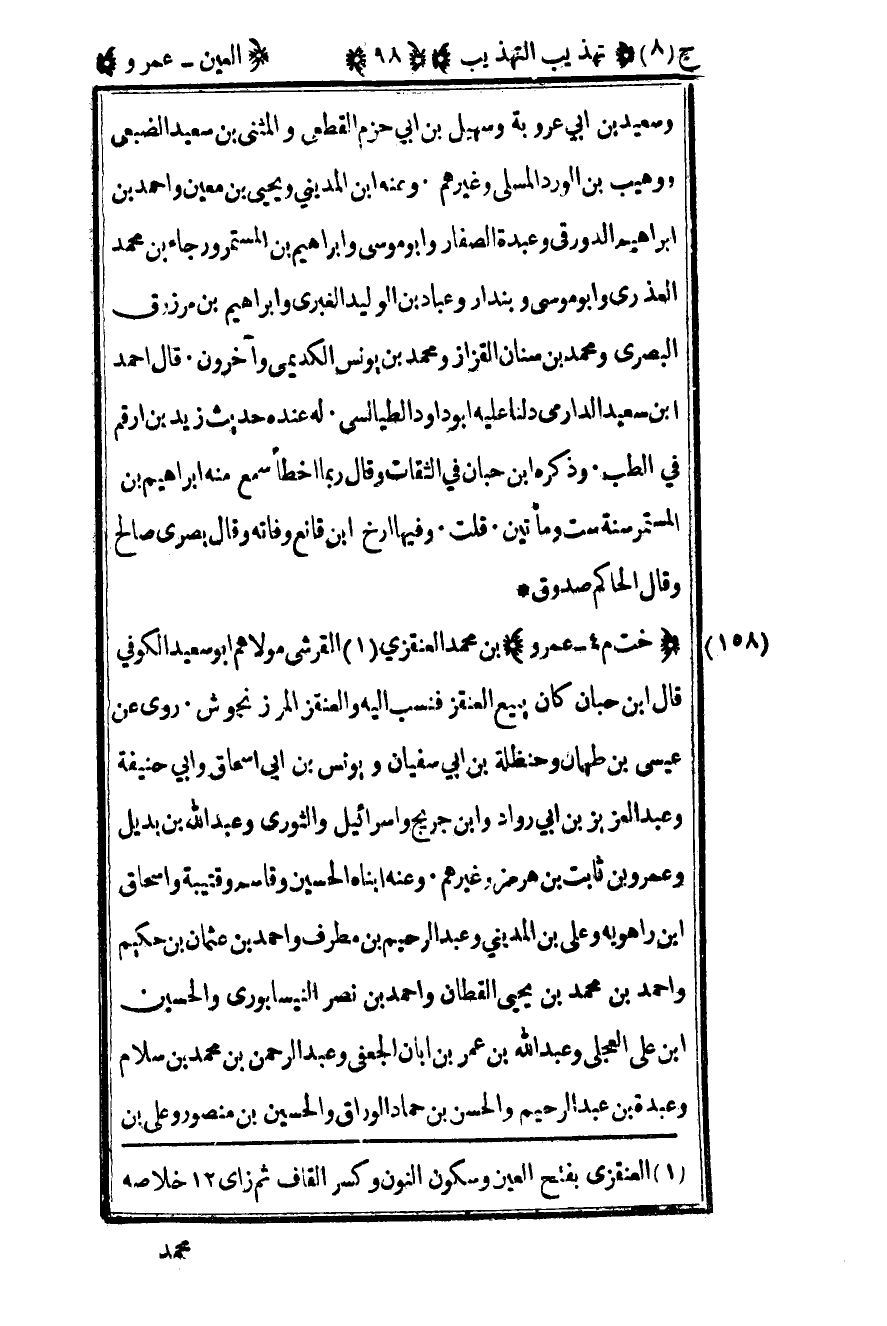 ج (٨) ﴿ تهذيب التهذيب ﴾ ﴿ ٩٨ ﴾ ﴿ العين - عمرو ﴾
وسعيد بن ابي عروبة وسهيل بن ابي حزم القطعي و المثنى بن سعيد الضبعى
ووهيب بن الورد المسلى وغيرهم ٠ وعنه ابن المديني ويحيى بن معين واحمد بن
ابراهيم الدورقى وعبدة الصفار وابوموسى وابراهيم بن المستمر ورجاء بن محمد
العذرى وابوموسى و بندار وعباد بن الوليد الغبرى وابراهيم بن مرزوق
البصرى ومحمد بن سنان القزاز ومحمد بن يونس الكديمى وآخرون ٠ قال احمد
ابن سعيد الدارمى دلنا عليه ابوداود الطيالسى ٠ له عنده حديث زيد بن ارقم
في الطب ٠ وذكره ابن حبان في الثقات وقال ربما اخطأ سمع منه ابراهيم بن
المستمر سنة ست ومأتين ٠ قلت ٠ وفيها ارخ ابن قانع وفاته وقال بصرى صالح
وقال الحاكم صدوق *
(١٥٨) ﴿ خت م ٤ - عمرو ﴾ بن محمد العنقزي (١) القرشى مولاهم ابوسعيد الكوفي
قال ابن حبان كان يبيع العنقز فنسب اليه والعنقز المرزنجوش ٠ روى عن
عيسى بن طهمان وحنظلة بن ابي سفيان و يونس بن ابي اسحاق وابي حنيفة
وعبد العزيز بن ابي رواد وابن جريج واسرائيل والثورى وعبد الله بن بديل
وعمرو بن ثابت بن هرمز وغيرهم ٠ وعنه ابناه الحسين وقاسم وقتيبة واسحاق
ابن راهويه وعلى بن المديني وعبد الرحيم بن مطرف واحمد بن عثمان بن حكيم
واحمد بن محمد بن يحيى القطان واحمد بن نصر النيسابورى والحسين
ابن على العجلى وعبد الله بن عمر بن ابان الجعفى وعبد الرحمن بن محمد بن سلام
وعبدة بن عبد الرحيم والحسن بن حماد الوراق والحسين بن منصور وعلى بن
(١) العنقزى بفتح العين وسكون النون و كسر القاف ثم زاى ١٢ خلاصه
محمد